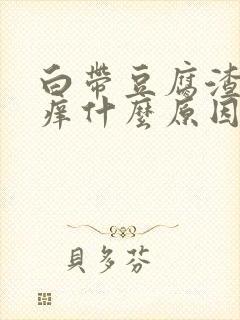 白帶豆腐渣
癢什麼原因
貝多芬